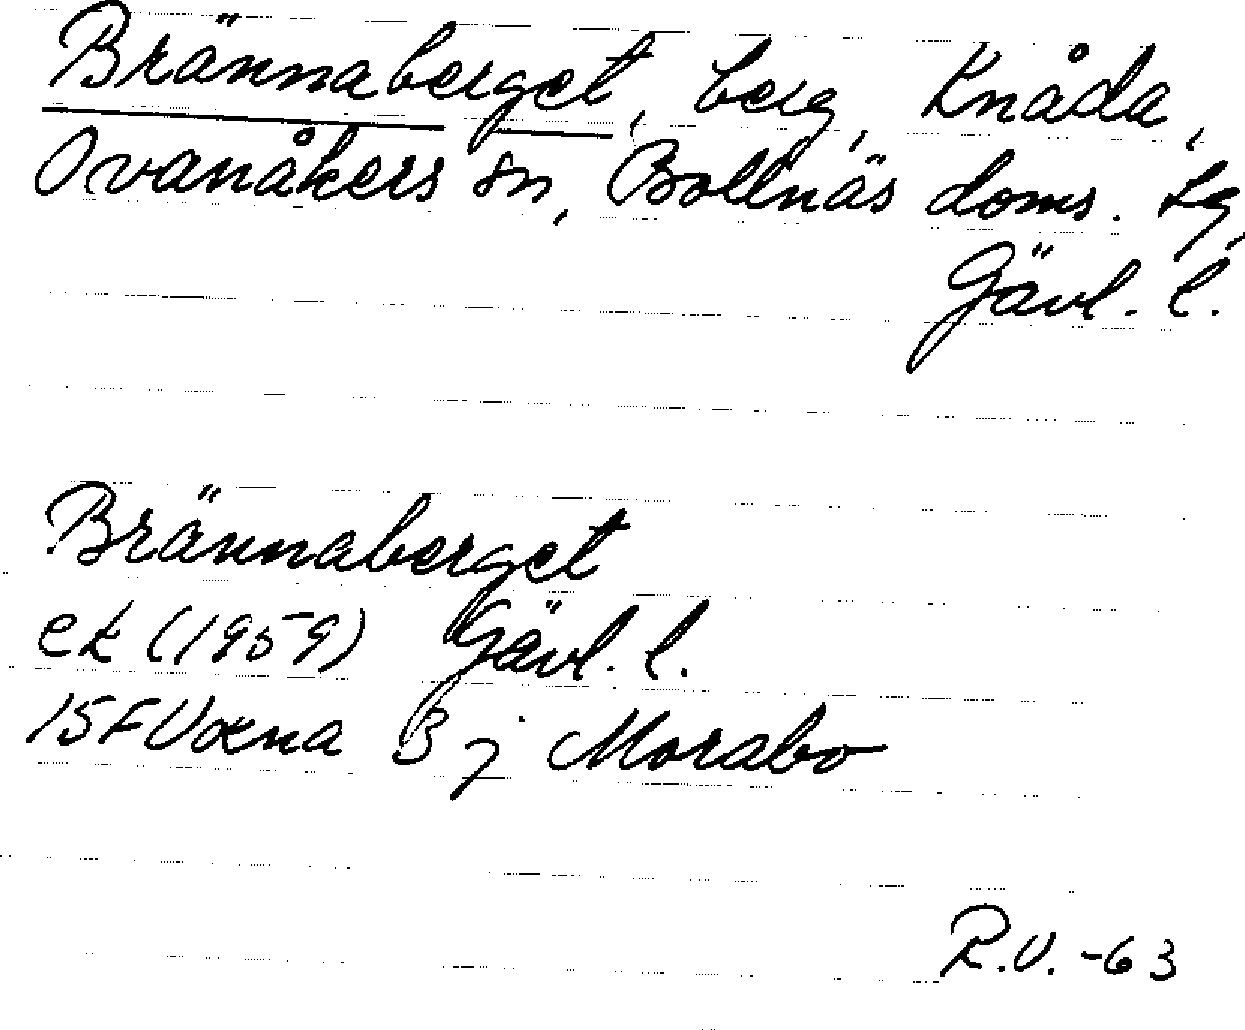 Brännaberget, berg, Knåda,
Ovanåkers sn, Bollnäs doms. lg,
Gävl. l.
Brännaberget
ek (1959) Gävl. l.
15F Voxna 3 j Morabo
R.V. -63